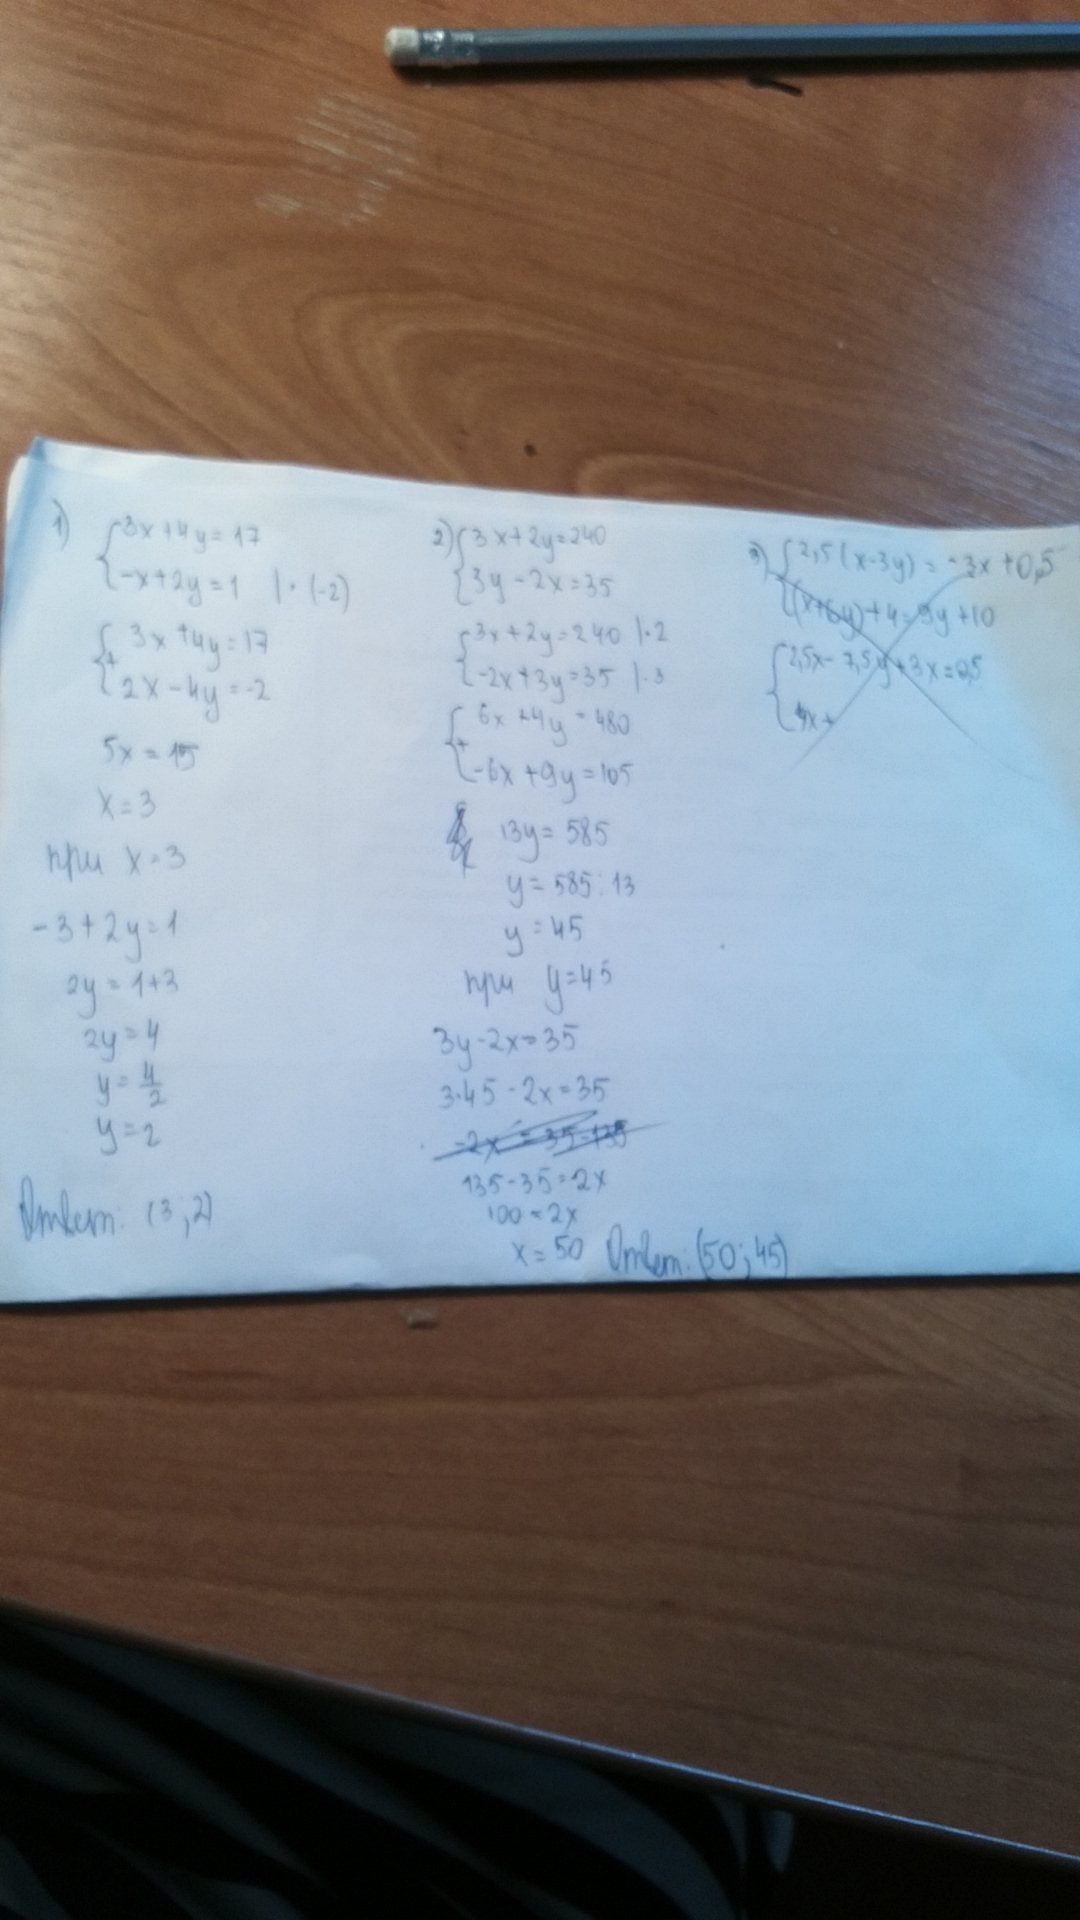 1) 3x+4y=17
-x+2y=1 |·(-2)
3x+4y=17
+
2x-4y=-2
5x=15
x=3
при x=3
-3+2y=1
2y=1+3
2y=4
y=4/2
y=2
Ответ: (3;2)
2) 3x+2y=240
3y-2x=35
3x+2y=240 |·2
-2x+3y=35 |·3
6x+4y=480
+
-6x+9y=105
13y=585
y=585:13
y=45
при y=45
3y-2x=35
3·45-2x=35
-2x=35-135
135-35=2x
100=2x
x=50 Ответ: (50;45)
3) 2,5(x-3y)=-3x+0,5
(x+6y)+4=9y+10
2,5x-7,5y+3x=0,5